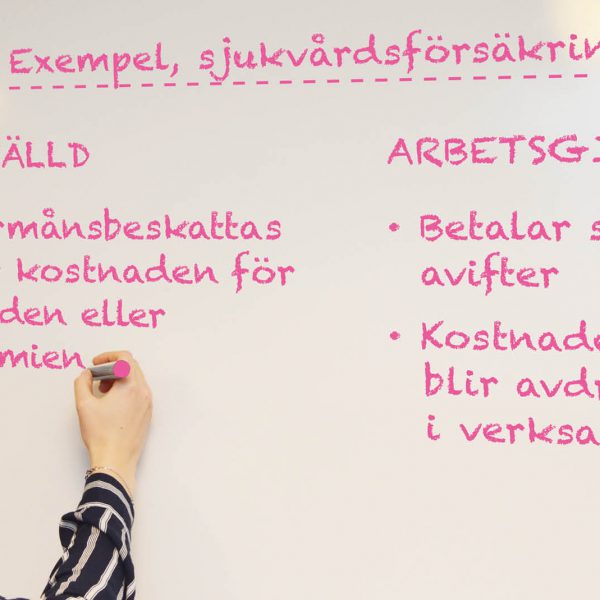 Exempel, sjukvårdsförsäkrin
ÄLLD
rmånsbeskattas
kostnaden för
den eller
mien
ARBETSGI
• Betalar s
avifter
• Kostnade
blir avdr
i verksa